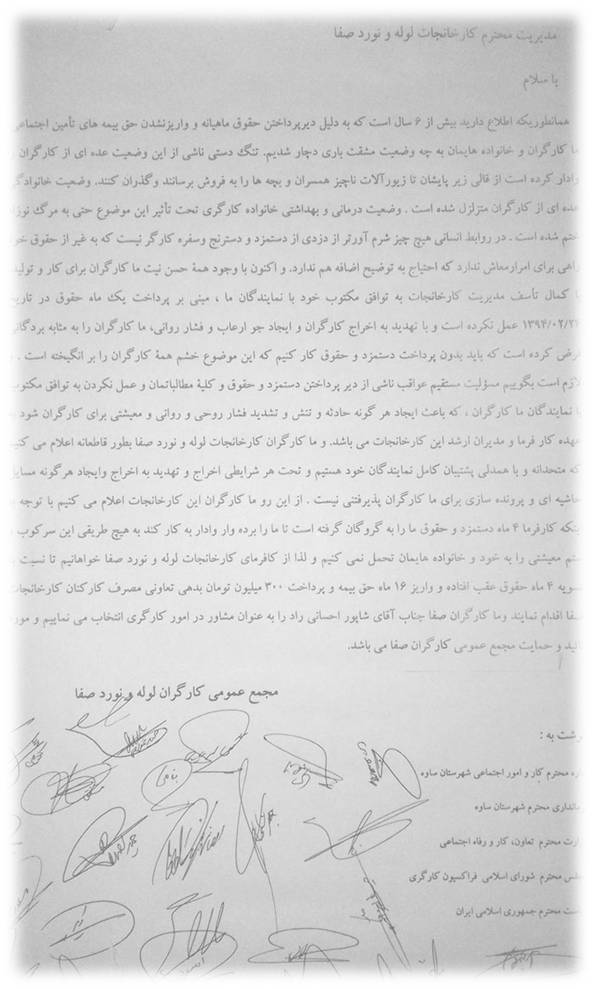 مدیریت محترم کارخانجات لوله و نورد صفا
با سلام
همانطوریکه اطلاع دارید بیش از ۶ سال است که به دلیل دیرپرداختن حقوق ماهیانه و واریزنشدن حق بیمه های تأمین اجتماعی
ما کارگران و خانواده هایمان به چه وضعیت مشقت باری دچار شدیم. تنگ دستی ناشی از این وضعیت عده ای از کارگران
وادار کرده است از قالی زیر پایشان تا زیورآلات ناچیز همسران و بچه ها را به فروش برسانند وگذران کنند. وضعیت خانوادگی
عده ای از کارگران متزلزل شده است . وضعیت درمانی و بهداشتی خانواده کارگری تحت تأثیر این موضوع حتی به مرگ نوزاد
ختم شده است . در روابط انسانی هیچ چیز شرم آورتر از دزدی از دستمزد و دسترنج وسفره کارگر نیست که به غیر از حقوق خود
راهی برای امرارمعاش ندارد که احتیاج به توضیح اضافه هم ندارد. و اکنون با وجود همۀ حسن نیت ما کارگران برای کار و تولید
با کمال تأسف مدیریت کارخانجات به توافق مکتوب خود با نمایندگان ما ، مبنی بر پرداخت یک ماه حقوق در تاریخ
عمل نکرده است و با تهدید به اخراج کارگران و ایجاد جو ارعاب و فشار روانی، ما کارگران را به مثابه بردگانی
فرض کرده است که باید بدون پرداخت دستمزد و حقوق کار کنیم که این موضوع خشم همۀ کارگران را بر انگیخته است .
لازم است بگوییم مسؤلیت مستقیم عواقب ناشی از دیر پرداختن دستمزد و حقوق و کلیۀ مطالباتمان و عمل نکردن به توافق مکتوب
با نمایندگان ما کارگران ، که باعث ایجاد هر گونه حادثه و تنش و تشدید فشار روحی و روانی و معیشتی برای کارگران شود به
عهده کار فرما و مدیران ارشد این کارخانجات می باشد. و ما کارگران کارخانجات لوله و نورد صفا بطور قاطعانه اعلام می کنیم
که متحدانه و با همدلی پشتیبان کامل نمایندگان خود هستیم و تحت هر شرایطی اخراج و تهدید به اخراج وایجاد هرگونه مسایل
حاشیه ای و پرونده سازی برای ما کارگران پذیرفتنی نیست . از این رو ما کارگران این کارخانجات اعلام می کنیم با توجه به
اینکه کارفرما ۴ ماه دستمزد و حقوق ما را به گروگان گرفته است تا ما را برده وار وادار به کار کند به هیچ طریقی این سرکوب و
ستم معیشتی را به خود و خانواده هایمان تحمل نمی کنیم و لذا از کافرمای کارخانجات لوله و نورد صفا خواهانیم تا نسبت
تسویه ۴ ماه حقوق عقب افتاده و واریز ۱۶ ماه حق بیمه و پرداخت ۳۰۰ میلیون تومان بدهی تعاونی مصرف کارکنان کارخانجات
صفا اقدام نمایند وما کارگران صفا جناب آقای شاپور احسانی راد را به عنوان مشاور در امور کارگری انتخاب می نماییم و مورد
تائید و حمایت مجمع عمومی کارگران صفا می باشد.
مجمع عمومی کارگران لوله و نورد صفا
رونوشت به :
اداره محترم کار و امور اجتماعی شهرستان ساوه
فرمانداری محترم شهرستان ساوه
وزارت محترم تعاون، کار و رفاه اجتماعی
مجلس محترم شورای اسلامی فراکسیون کارگری
محترم جمهوری اسلامی ایران